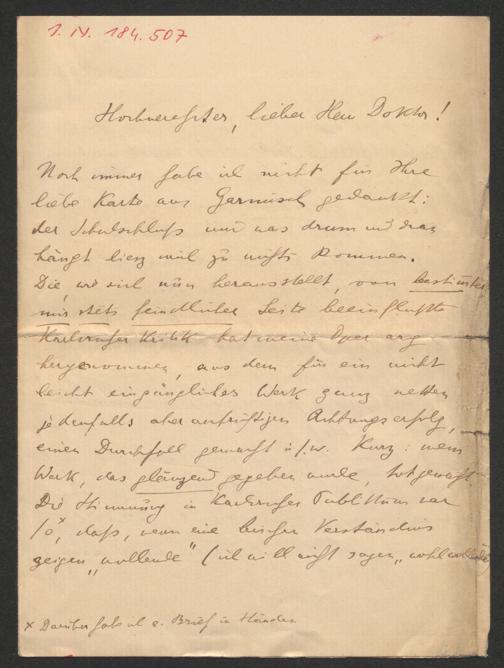 I. N. 184.507
Hochverehrter, lieber Herr Doktor!
Noch immer habe ich nicht für Ihre
liebe Karte aus Garmisch gedankt:
der Schulschluß und was drum und dran
hängt liess mich zu nichts kommen.
Die, wie sich nun herausstellt, von bestimmter
mir stets feindlicher Seite beeinflußte
Karlsruher Kritik hat meine Oper arg
hergenommen, aus dem für ein nicht
leicht eingängliches Werk ganz netten
jedenfalls aber aufrichtigen Achtungserfolg,
einen Durchfall gemacht u.s.w. Kurz: mein
Werk, das glänzend gegeben wurde, ist
Die Stimmung in Karlsruher Publikum war
so x, daß, wenn eine bischen Verständnis
zeigen "wollende" (ich will nicht sagen "wohlwollende
x Darüber habe ich e. Brief in Händen